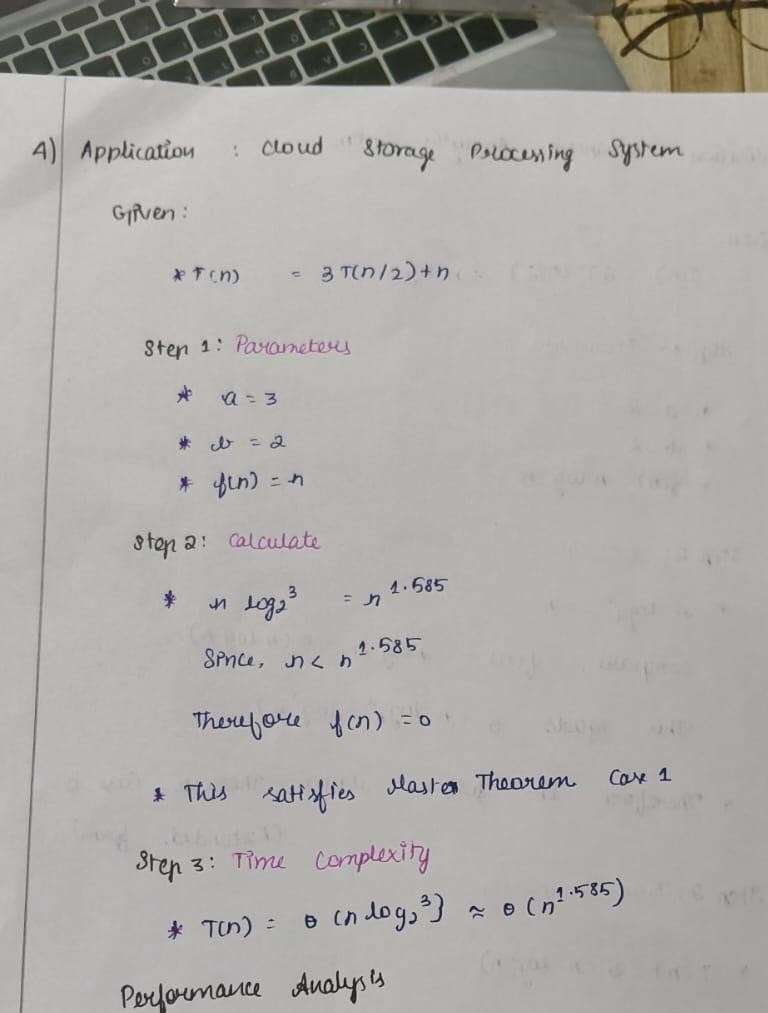 4) Application : Cloud Storage Processing System
Given:
* T(n) = 3T(n/2)+n
Step 1: Parameters
* a = 3
* b = 2
* f(n) = n
Step 2: Calculate
* n log₂³ = n^1.585
Since, n < n^1.585
Therefore f(n) = 0
* This satisfies Master Theorem Case 1
Step 3: Time Complexity
* T(n) = θ (n log₂³} ≈ θ (n^1.585)
Performance Analysis